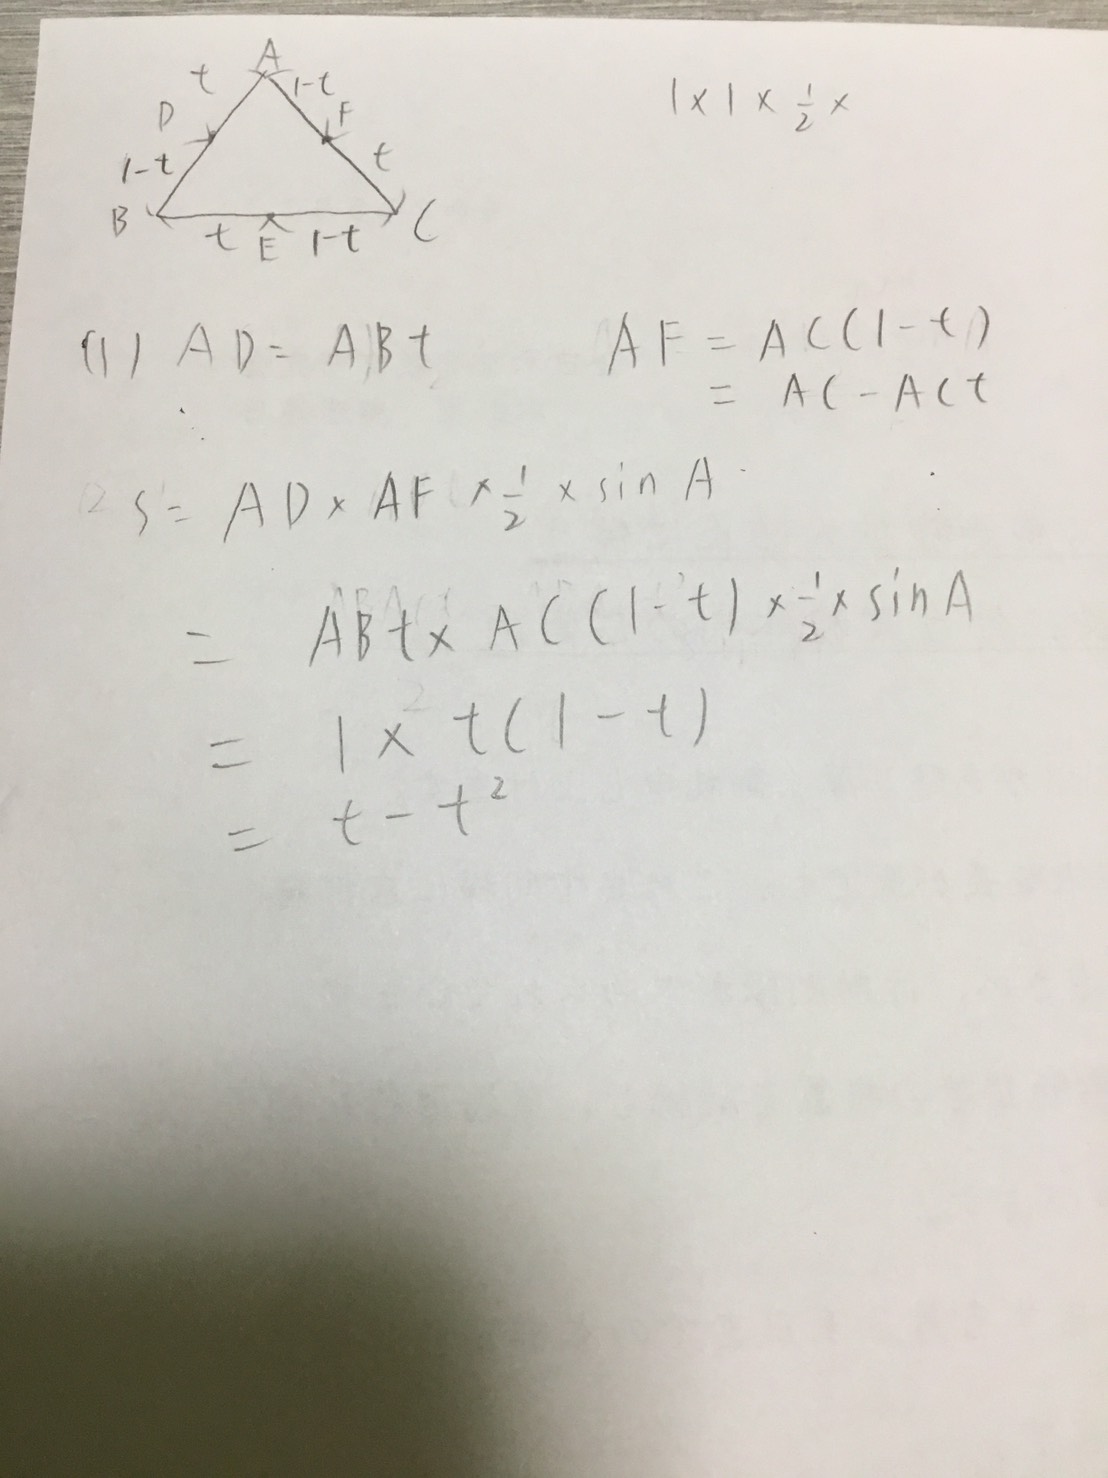 A
t 1-t
D F
1-t t
B C
t E 1-t
1×1×1/2×
(1) AD= ABt
AF = AC(1-t)
= AC-ACt
S= AD×AF×1/2×sin A
= ABt×AC(1-t)×1/2×sinA
= 1×t(1-t)
= t-t²